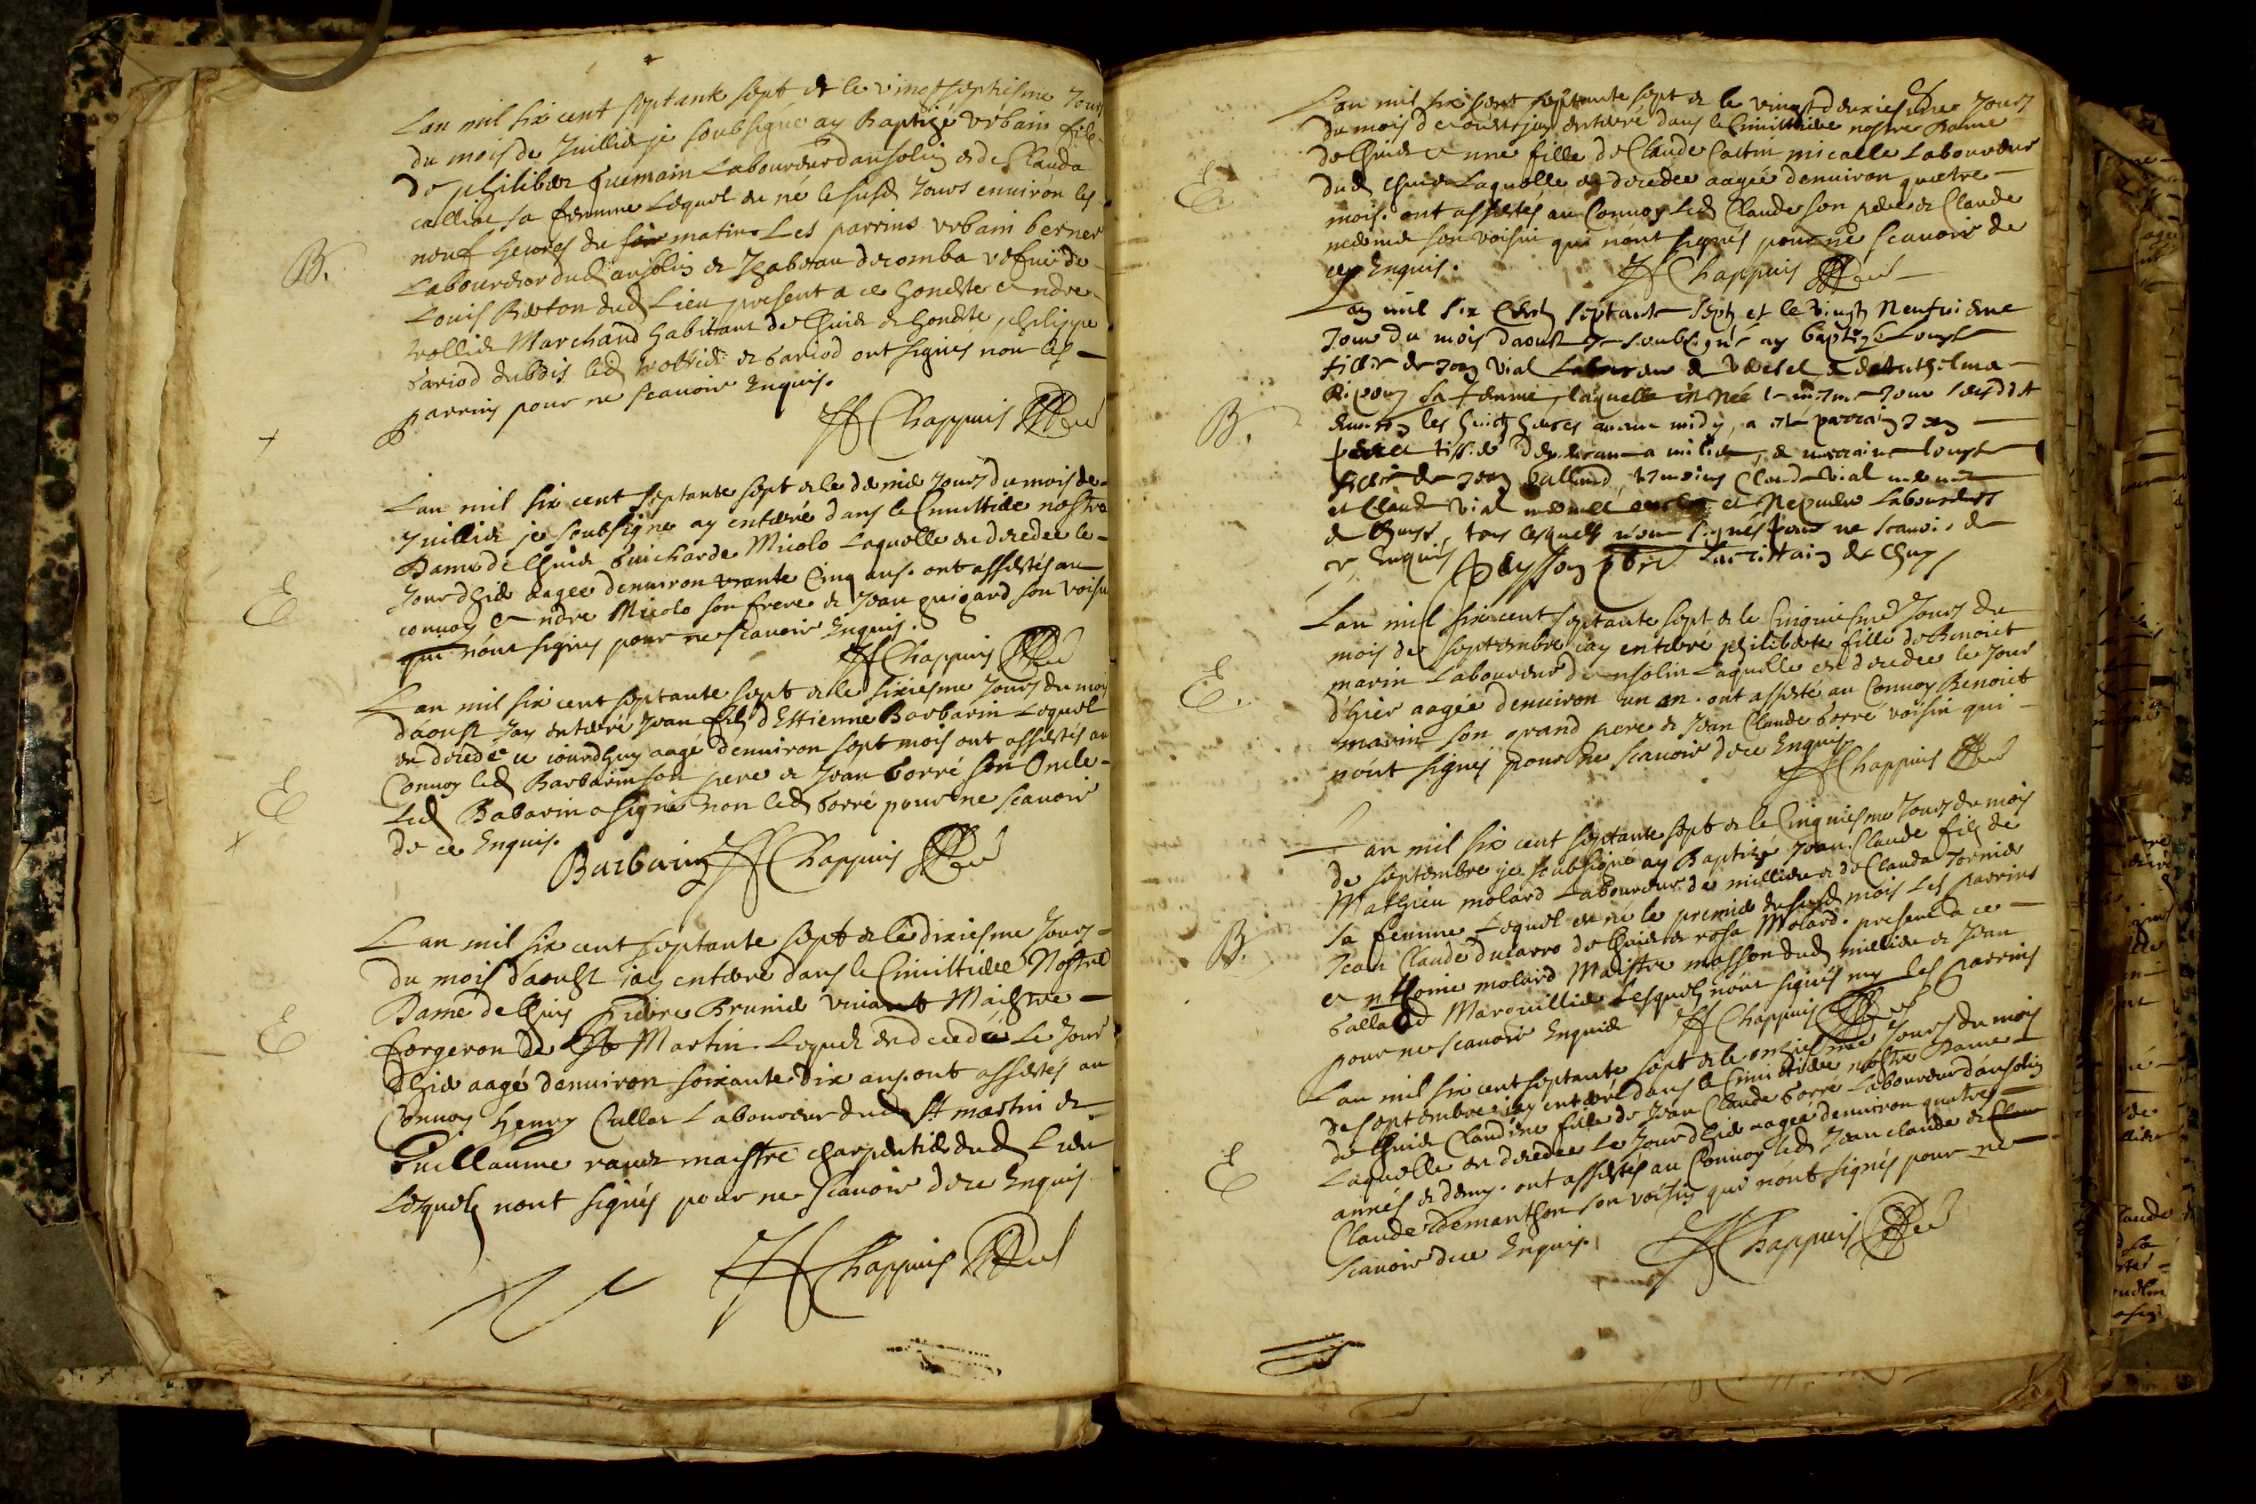 Lan mil six cent septante sept et le vingt septiesme Jours
du mois de Juillier je soubsigné ay Baptizé vrbain filz
de philiber Laboureur dansolin et de Clauda
sa femme Lequel est né le susd Jours enuiron les
neuf heures du matin Les parrins vrbain berner
Laboureur dud ansolin et Jzabeau decomba vefue de
Louis Breton dud Lieu present a ce honeste Andre
Marchand habitant de Chuis et honeste philippe
bariod dubois led et bariod ont signés non les
parrins pour ne scauoir Enquis.
B.
H Chappuis
Lan mil six cent septante sept et le Jours du mois de
Juillier je soubsigne ay enterré dans le Cimittiere nostre
Dame de Chuis Guicharde Micolo Laquelle est decedee le
Jour dhier aagee denuiron trante Cinq ans. ont assistés au
conuoy Andre Micolo son frere et Jean guigard son voisin
qui nont signes pour ne scauoir Enquis.
E
H Chappuis
Lan mil six cent septante sept et le sixiesme Jours du mois
daoust Jay enterré Jean filz dEstienne Barbarin Lequel
est decedé ce iourdhuy aagé denuiron sept mois ont assistés au
Conuoy led Barbarin son pere et Jean borré son Oncle
Led Babarin a signé non led borré pour ne scauoir
de ce Enquis.
E
Barbarin H Chappuis
Lan mil six cent septante sept et le dixiesme Jours
du mois daoust iay enterré dans le Cimittiere Nostre
Dame de Chuis pierre Brunier viuant Maistre
forgeron de St Martin Lequel est decedé Le Jour
dhier aagé denuiron soixante dix ans. ont assistés au
Conuoy henry Cullat Laboureur dud St martin et
Guillaume maistre charpentier dud Lieu
Lesquels nont signés pour ne scauoir dece Enquis
E
H Chappuis
Lan mil six cent septante sept et le vingt deuxiesme Jours
du mois de iay enterré dans le Cimittiere nostre Dame
de Chuis Anne fille de Claude Caltin micalle Laboureur
dud Chuis Laquelle est decedee aagée denuiron quatre
mois. ont assistés au Conuoy Led Claude son pere et Claude
son voisin qui nont signés pour ne scauoir de
ce Enquis.
E.
H Chappuis
Lan mil six Cent septante sept et le vingt Neufuieme
Jour du mois daoust Je soubsigné ay baptizé
fille de Jean vial Laboureur de et de
sa femme, laquelle est Née le mesme Jour susdit
enuiron les huict heures auant midy, a este parrain Jean
et marraine
de Jean balland, temoins Claude vial
et Claude vial et Nepueu Laboureurs
de Chuys, tous lesquels nont signes pour ne scauoir de
ce Enquis
B.
Sacristain de Chuys
Lan mil six cent septante sept et le Cinquiesme Jours du
mois de septembre iay enterré philiberte fille de Benoict
marin Laboureur dansolin Laquelle est decedee le Jour
dhier aagée denuiron un an. ont assisté au Conuoy Benoict
marin son grand pere et Jean Claude borré voisin qui
nont signés pour ne scauoir dece Enquis
E.
H Chappuis
Lan mil six cent septante sept et le Cinquiesme Jours du mois
de septembre je soubsigne ay Baptizé Jean Claude filz de
Mathieu molard Laboureur de millieu et de Clauda Tornier
sa femme Lequel est né le premier dususd mois Les parrins
Jean Claude ducarro de Chuis et rosa Molard. present a ce
Anthoine molard Maistre masson dud millieu et Jean
balland Marquillier Lesquels nont signés ny les parrins
pour ne scauoir Enquis
B.
H Chappuis
Lan mil six cent septante sept et le onziesme Jours du mois
de septembre iay enterré dans le Cimittiere nostre Dame
de Chuis Claudine fille de Jean Claude borré Laboureur dansolin
Laquelle est decedee Le Jour dhier aagée denuiron quatre
annés et demy. ont assistés au Conuoy led Jean claude et
Claude demanthon son voisin qui nont signés pour ne
scauoir dece Enquis.
E
H Chappuis